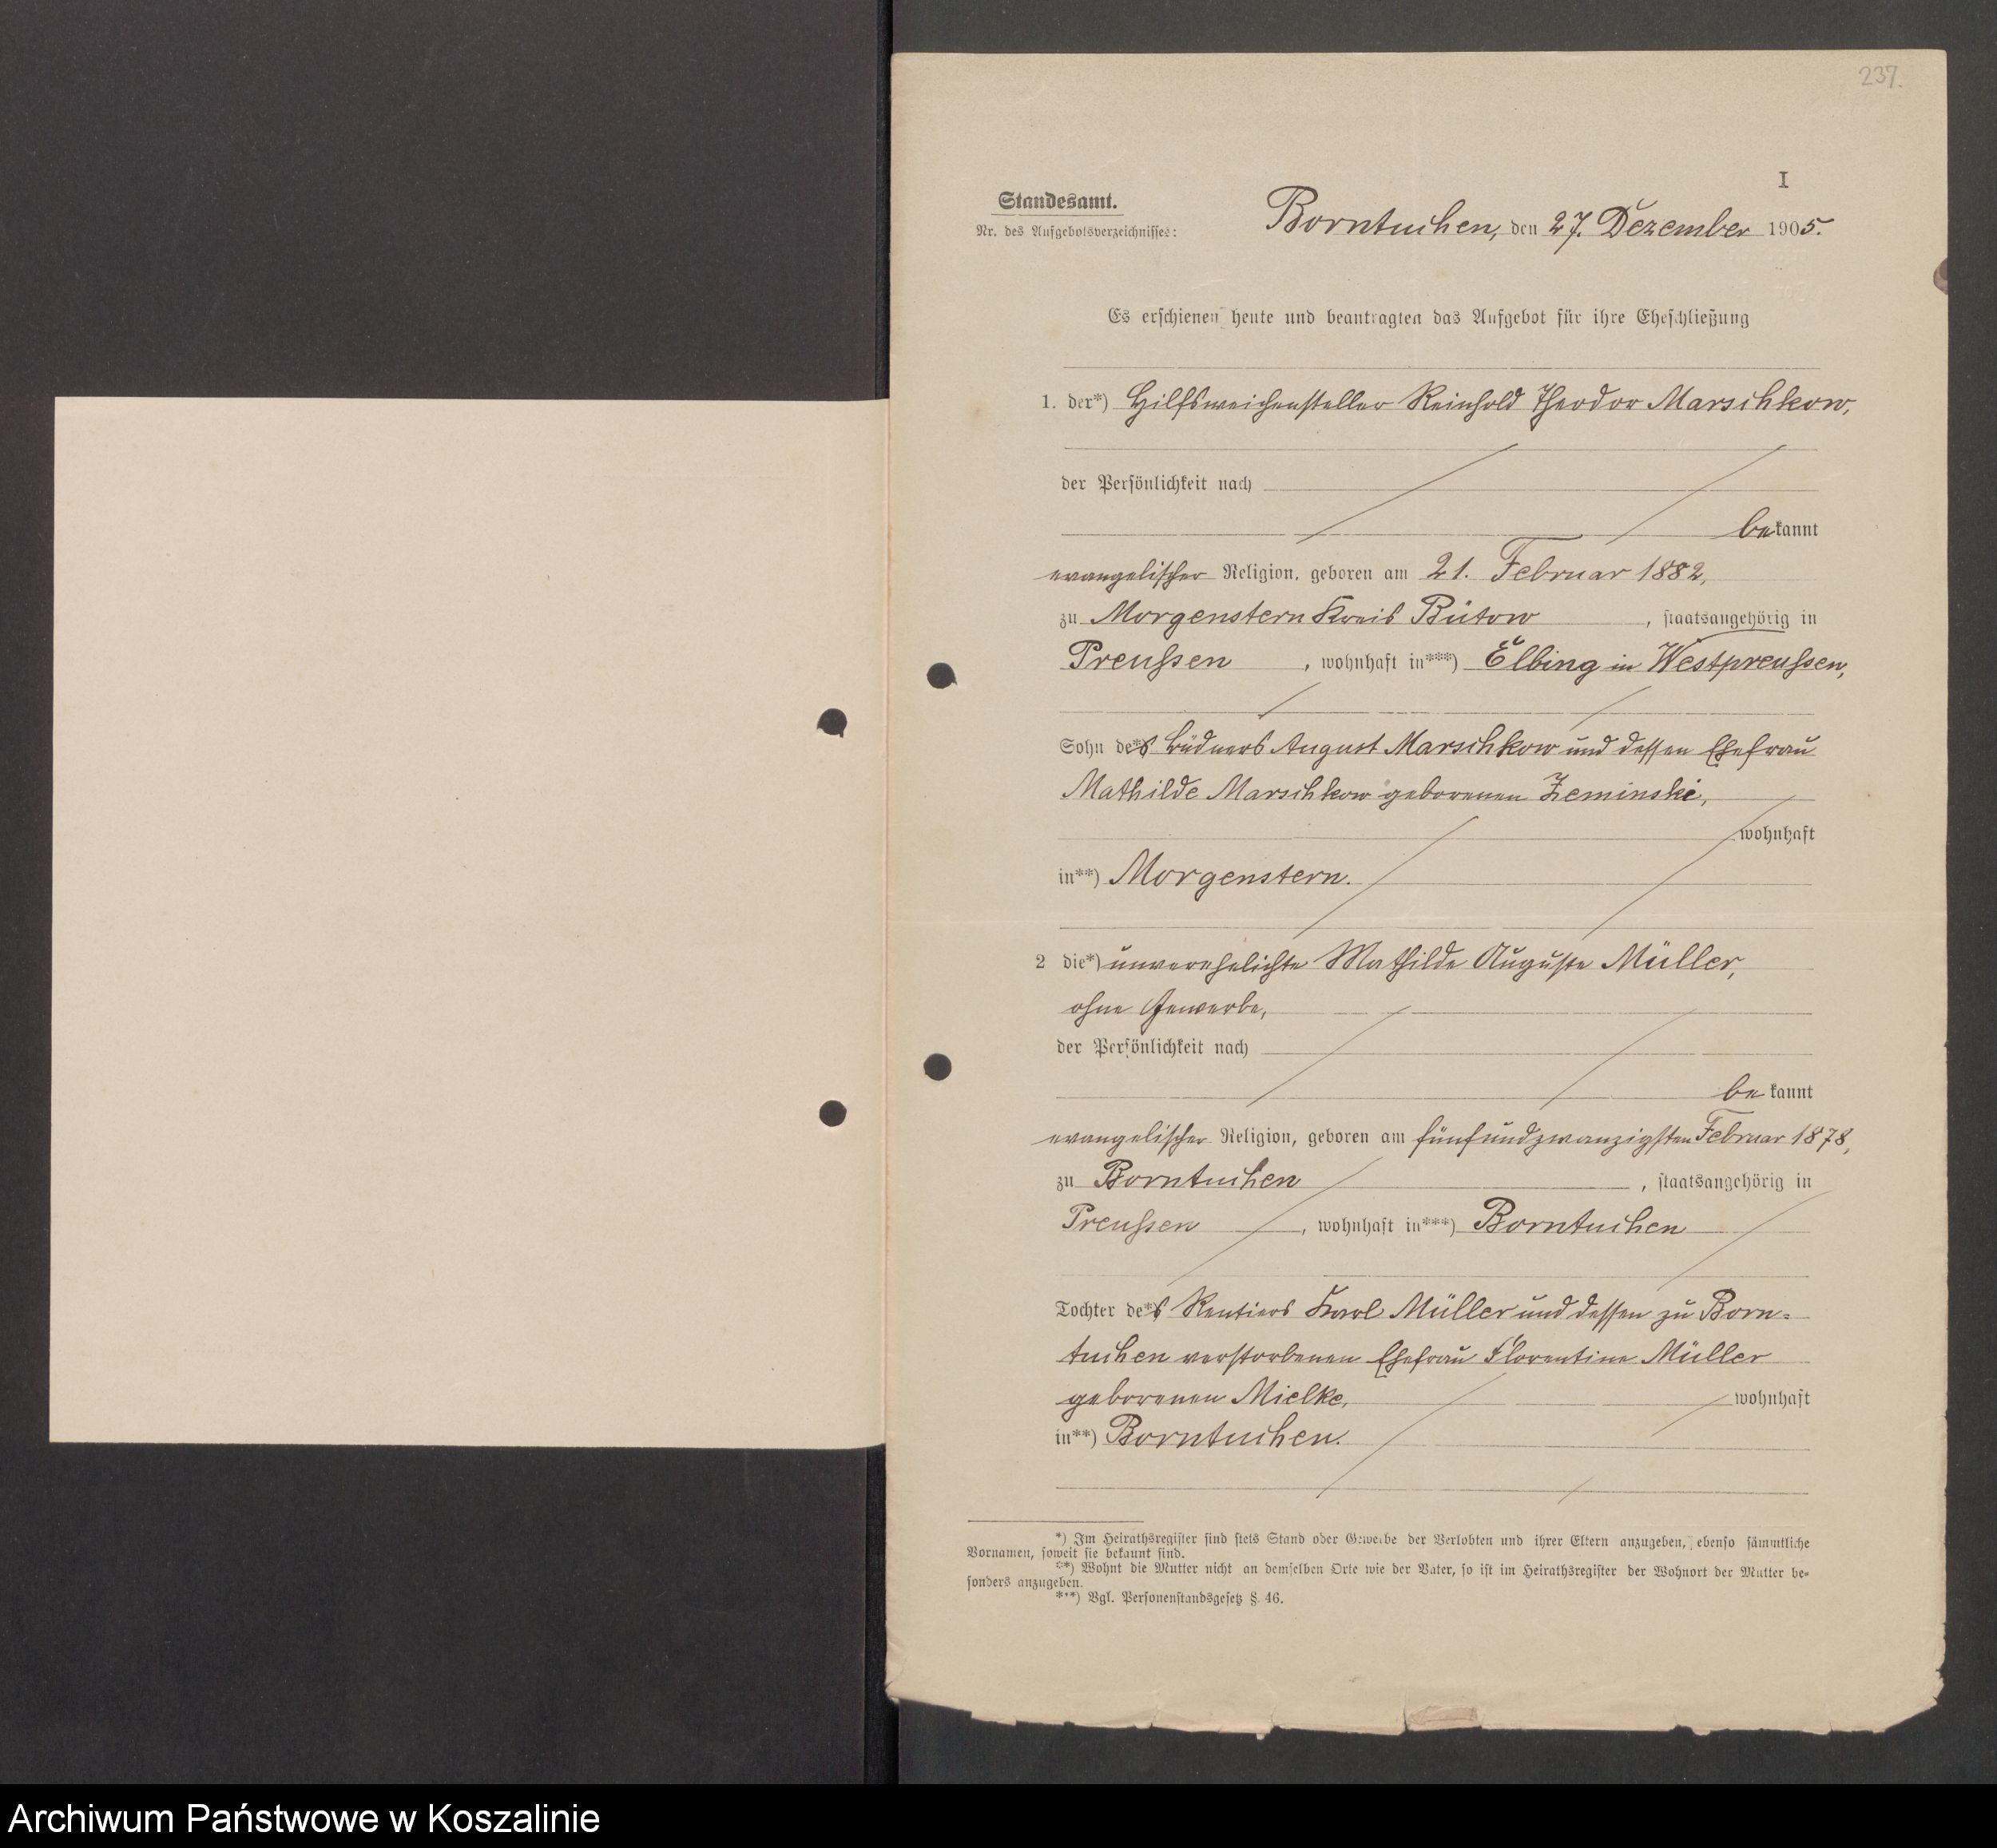 237.
I
Standesamt.
Nr. des Aufgebotsverzeichnisses:
Borntuchen, den 27. Dezember 1905.
Es erschienen heute und beantragten das Aufgebot für ihre Eheschließung
1. der*) Hilfsweichensteller Reinhold Theodor Marschkow,
der Persönlichkeit nach
bekannt
evangelischer Religion, geboren am 21. Februar 1882,
zu Morgenstern Kreis Bütow, staatsangehörig in
Preussen, wohnhaft in***) Elbing in Westpreussen,
Sohn de*s Büdners August Marschkow und dessen Ehefrau
Mathilde Marschkow geborenen Zeminski,
wohnhaft
in**) Morgenstern.
2 die*) unverehelichte Mathilde Auguste Müller,
ohne Gewerbe,
der Persönlichkeit nach
bekannt
evangelischer Religion, geboren am fünfundzwanzigsten Februar 1878,
zu Borntuchen, staatsangehörig in
Preussen, wohnhaft in***) Borntuchen
Tochter de*s Rentiers Karl Müller und dessen zu Born=
tuchen verstorbenen Ehefrau Florentine Müller
geborenen Mielke, wohnhaft
in**) Borntuchen.
*) Im Heirathsregister sind stets Stand oder Gewerbe der Verlobten und ihrer Eltern anzugeben, ebenso sämmtliche
Vornamen, soweit sie bekannt sind.
**) Wohnt die Mutter nicht an demselben Orte wie der Vater, so ist im Heirathsregister der Wohnort der Mutter be=
sonders anzugeben.
***) Vgl. Personenstandsgesetz § 46.
Archiwum Państwowe w Koszalinie